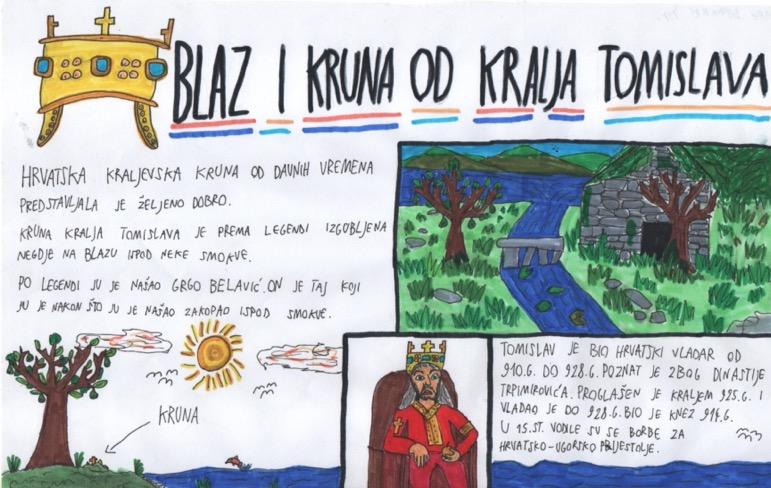 BLAZ I KRUNA OD KRALJA TOMISLAVA
HRVATSKA KRALJEVSKA KRUNA OD DAVNIH VREMENA
PREDSTAVLJALA JE ŽELJENO DOBRO.
KRUNA KRALJA TOMISLAVA JE PREMA LEGENDI IZGUBLJENA
NEGDJE NA BLAZU ISPOD NEKE SMOKVE.
PO LEGENDI JU JE NAŠAO GRGO BELAVIĆ. ON JE TAJ KOJI
JU JE NAKON ŠTO JU JE NAŠAO ZAKOPAO ISPOD SMOKVE.
KRUNA
TOMISLAV JE BIO HRVATSKI VLADAR OD
910.G. DO 928.G. POZNAT JE ZBOG DINASTIJE
TRPIMIROVIĆA. PROGLAŠEN JE KRALJEM 925.G. I
VLADAO JE DO 928.G. BIO JE KNEZ 914.G.
U 15.ST. VODILE SU SE BORBE ZA
HRVATSKO-UGORSKO PRIJESTOLJE.